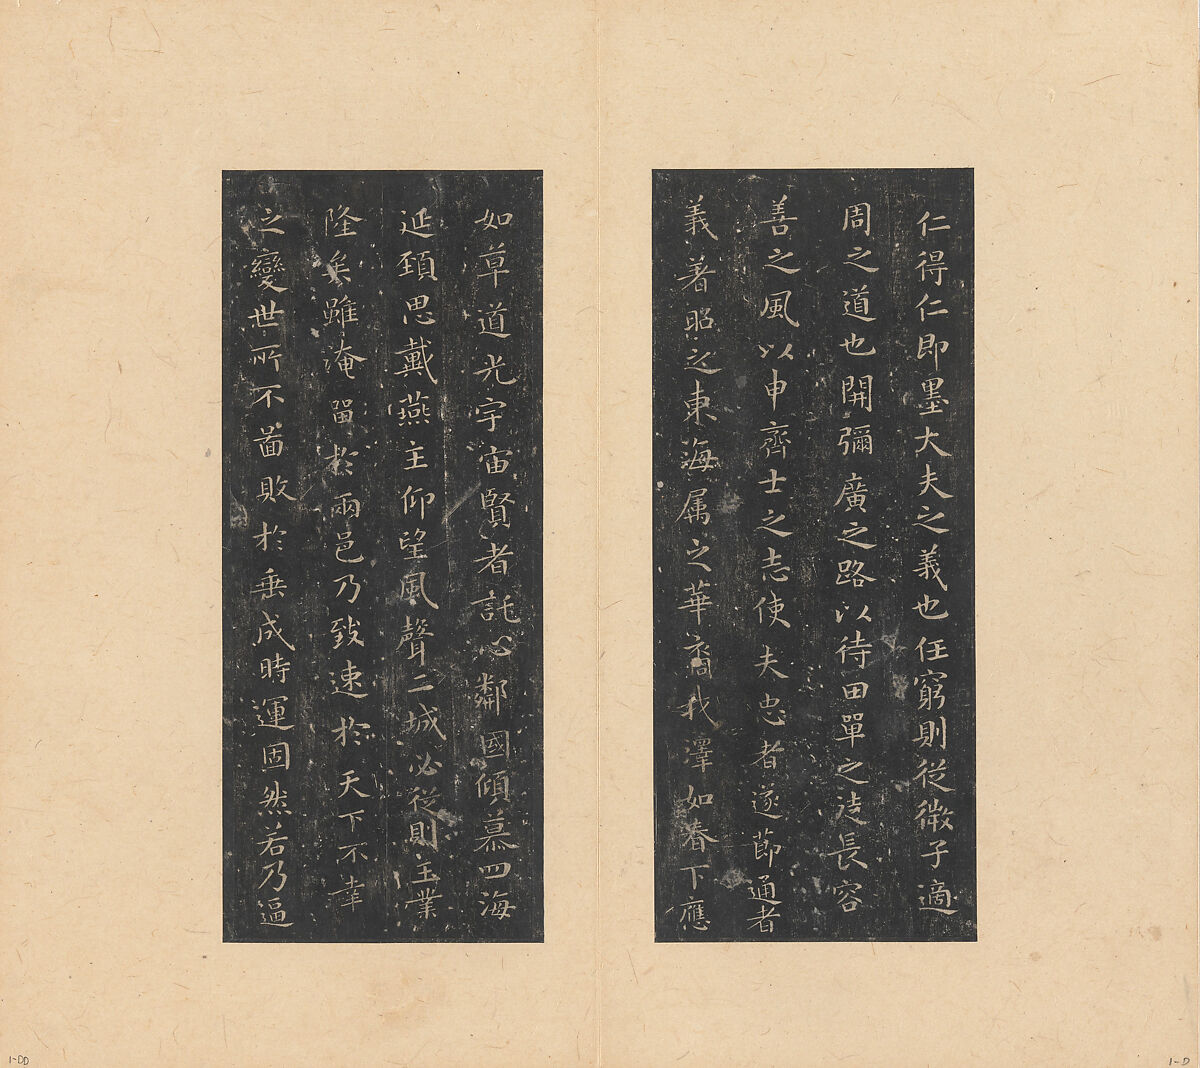 仁得仁即墨大夫之義也任窮則從微子適
周之道也開彌廣之路以待田單之徒長容
善之風以申齊士之志使夫忠者遂節通者
義著昭之東海属之華裔我澤如春下應
如草道光宇宙賢者託心鄰國傾慕四海
延頚思戴燕主仰望風聲二城必從則王業
隆矣雖淹留於兩邑乃致速於天下不幸
之變世所不啚敗於垂成時運固然若乃逼
1-DD
1-D